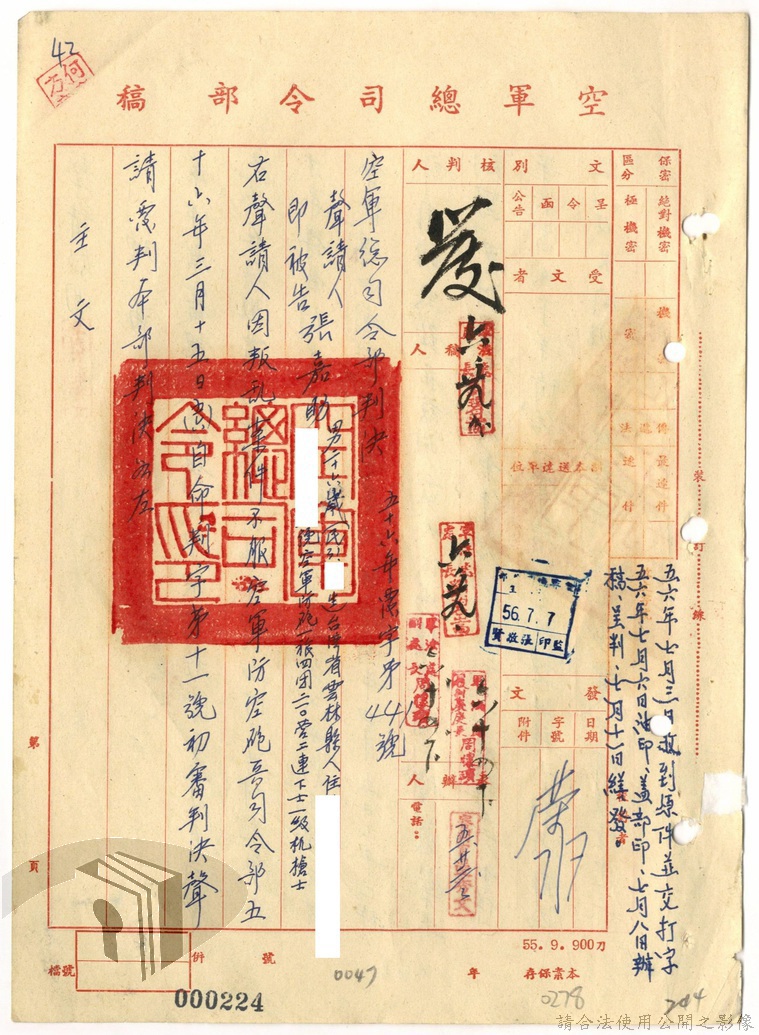 42
空軍總司令部稿
保密區分
絕對機密
極機密
機密
傳遞
最速件
速件
文別
呈
令
函
公告
受文者
副本送達單位
發文
日期
字號
附件
核判人
核稿人
擬辦人
電話：
發
空軍總司令部判決 五十六年覆字第44號
聲請人
即被告 張嘉助 男 二十六歲
台灣省雲林縣人 住
空軍防砲一旅四團二〇一營二連下士一級机槍士
右聲請人因叛乱案件不服空軍防空砲兵司令部五
十六年三月十五日(56)自命判字第十一號初審判決聲
請覆判本部判決如左
主文
五六年七月三日收到原件並交打字
五六年七月六日油印、蓋部印、七月八日辦
稿、呈判、七月十一日繕發。
56.7.7
監印
裝訂線
第頁
檔號
併號
年
本案保存
55.9.900刀
000224
0047
0278
244
請合法使用公開之影像